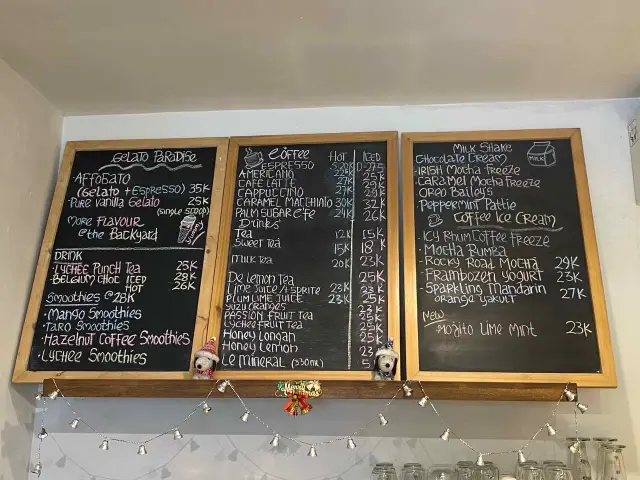 Gelato Paradise
AFFOGATO
(Gelato + Espresso) 35K
Pure Vanilla Gelato 25K
(single scoop)
More Flavour
@the Backyard
DRINK
Lychee Punch Tea 25K
Belgium Choc Iced 28K
Hot 26K
Smoothies @28K
Mango Smoothies
Taro Smoothies
Hazelnut Coffee Smoothies
Lychee Smoothies
Coffee Hot Iced
Espresso
Americano 25K
Cafe Latte 27K 29K
Cappuccino 27K 29K
Caramel Macchiato 30K 32K
Palm Sugar Cfe 24K 26K
Drinks
Tea 12K 15K
Sweet Tea 15K 18K
Milk Tea 20K 23K
De Lemon Tea 25K
Lime Juice / + Sprite 23K
Plum Lime Juice 23K 25K
Yuzu Oranges
Passion Fruit Tea 25K
Lychee Fruit Tea 25K
Honey Longan 25K
Honey Lemon 23
Le Mineral (330ml) 5
Milk Shake
MILK
Chocolate Cream
Irish Mocha Freeze
Caramel Mocha Freeze
Oreo Bailey's
Peppermint Pattie
Coffee Ice Cream
Icy Rhum Coffee Freeze
Mocha Bumba
Rocky Road Mocha 29K
Frambozen Yogurt 23K
Sparkling Mandarin 27K
Orange Yakult
New
Mojito Lime Mint 23K
Merry Christmas